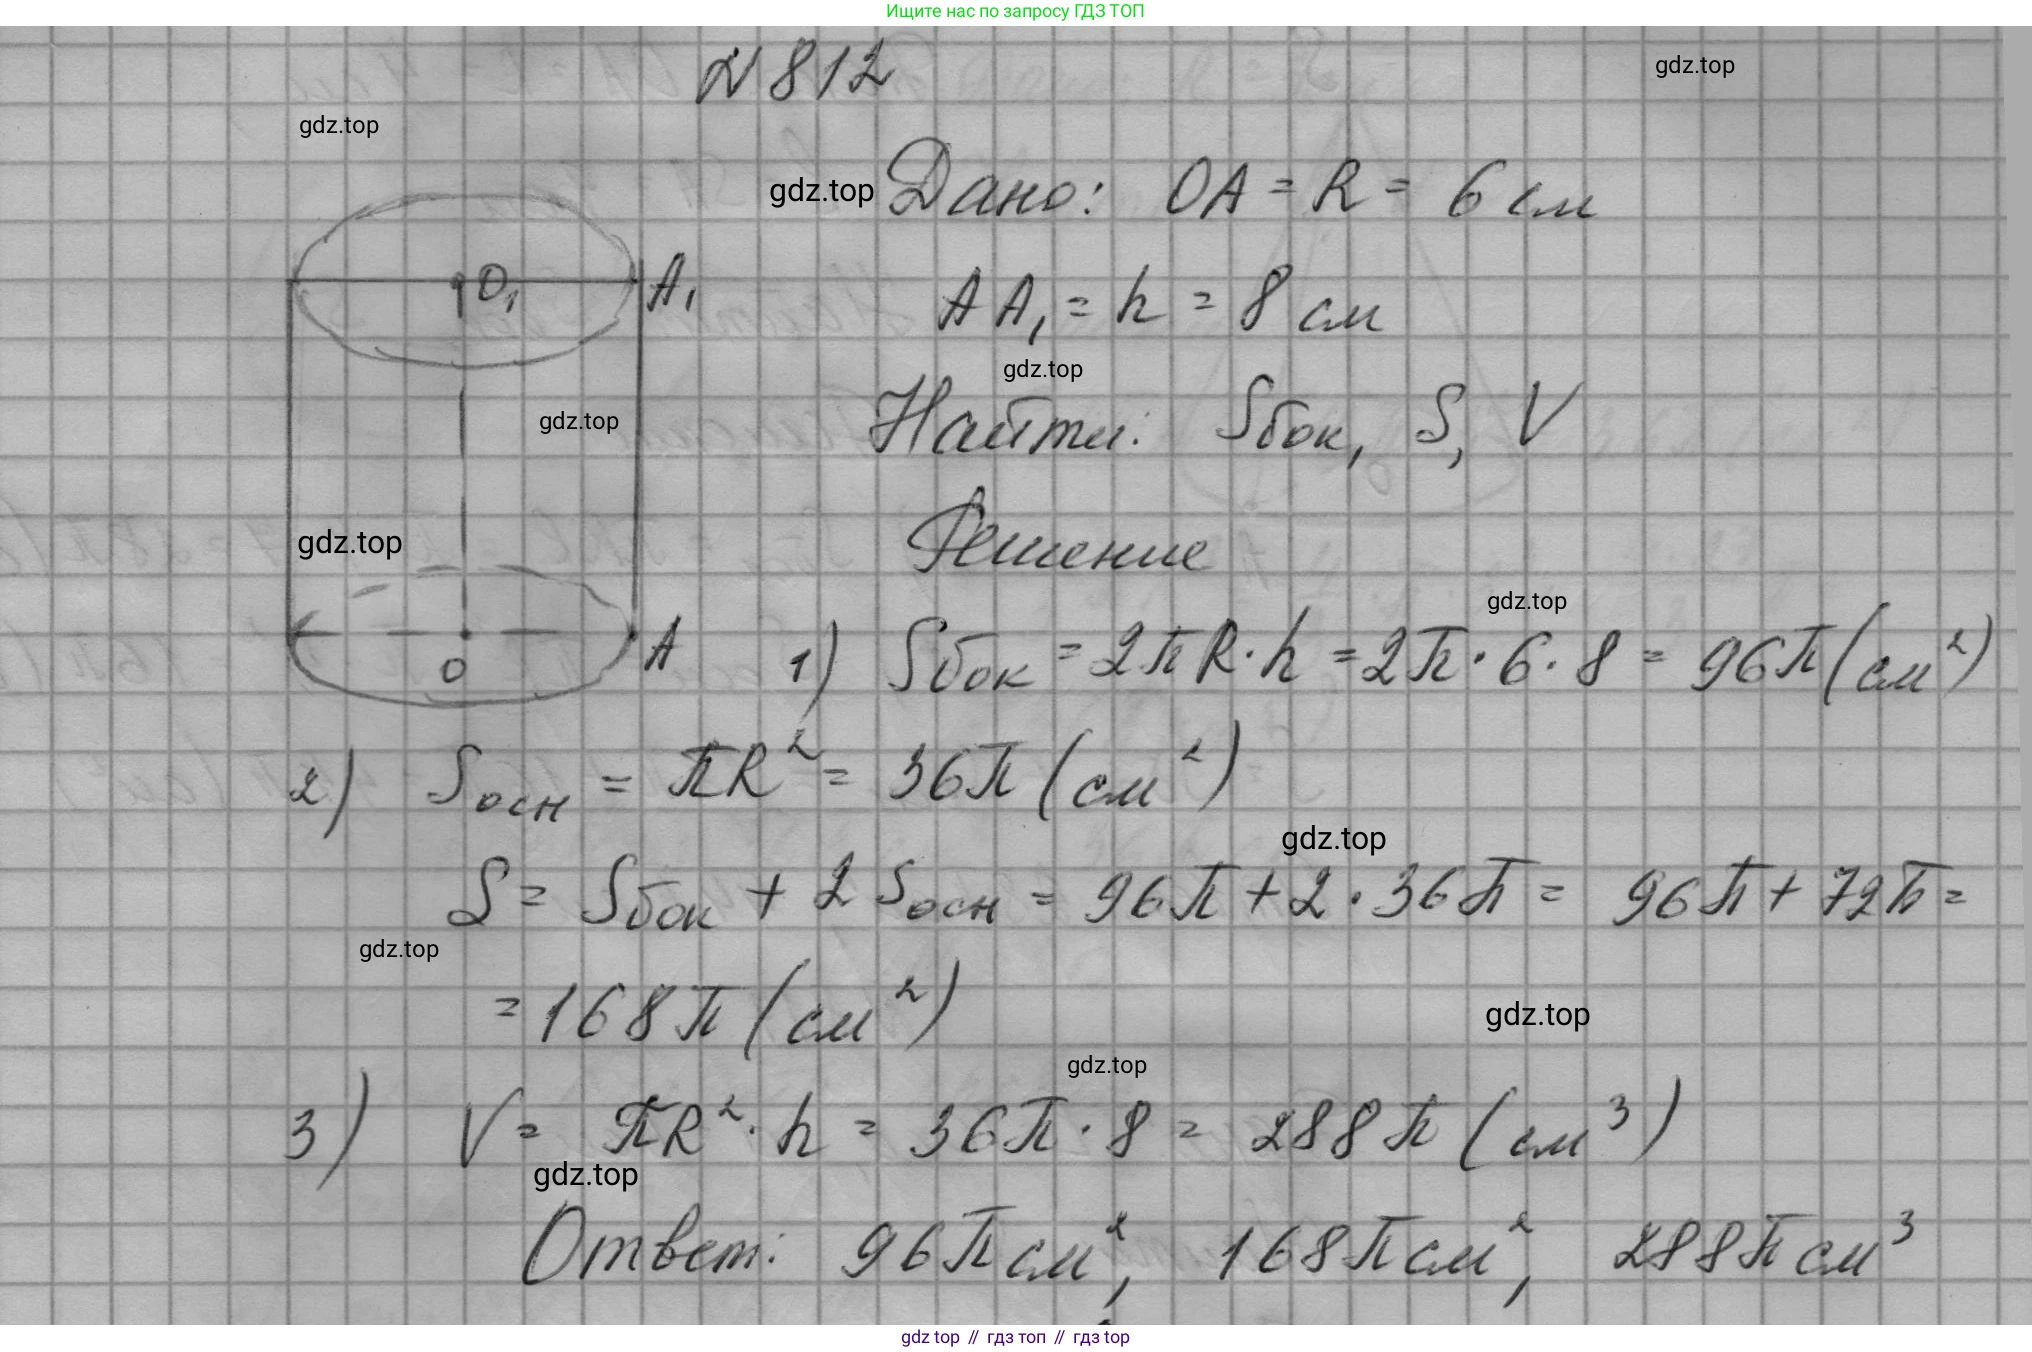 Ищите нас по запросу ГДЗ ТОП
N 812
gdz.top
gdz.top
gdz.top Дано: OA = R = 6 см
O₁ A₁ AA₁ = h = 8 см
gdz.top
gdz.top Найти: Sбок, S, V
gdz.top Решение
gdz.top
O A 1) Sбок = 2πR · h = 2π · 6 · 8 = 96π (см²)
2) Sосн = πR² = 36π (см²)
gdz.top
S = Sбок + 2 Sосн = 96π + 2 · 36π = 96π + 72π =
gdz.top
= 168π (см²)
gdz.top
gdz.top
3) V = πR² · h = 36π · 8 = 288π (см³)
gdz.top
Ответ: 96π см², 168π см², 288π см³
gdz top // гдз топ // гдз top